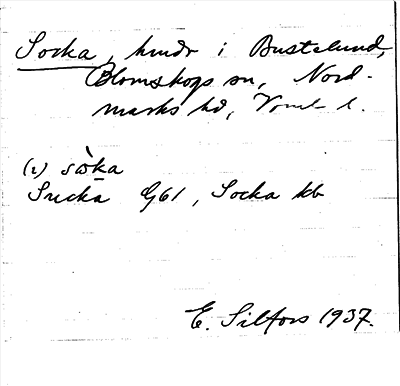 Socka, hmdr i Bustelund,
Blomskogs sn, Nord-
marks hd, Vrml. l.
(i) sòka
Sucka G61, Socka kb
E. Silfors 1937.